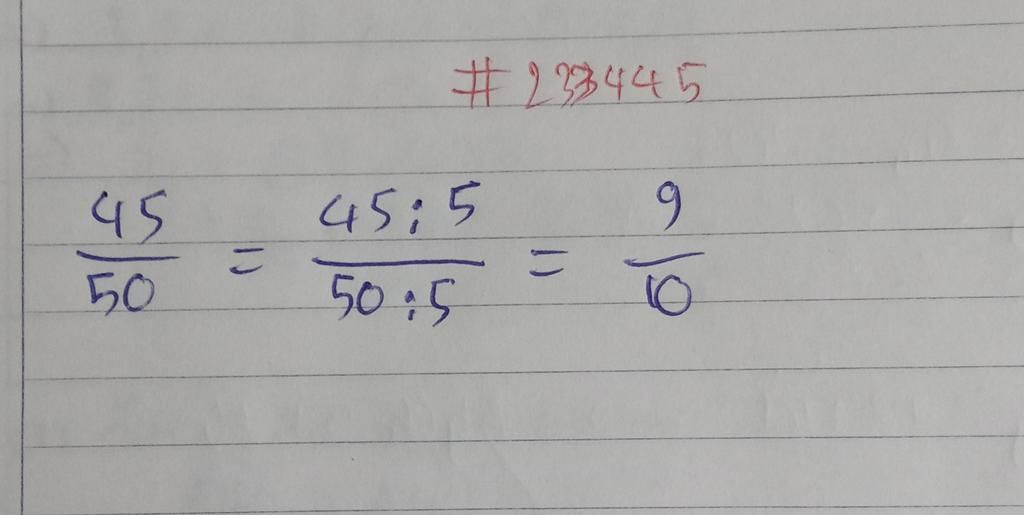 # 233445
45/50 = 45:5/50:5 = 9/10